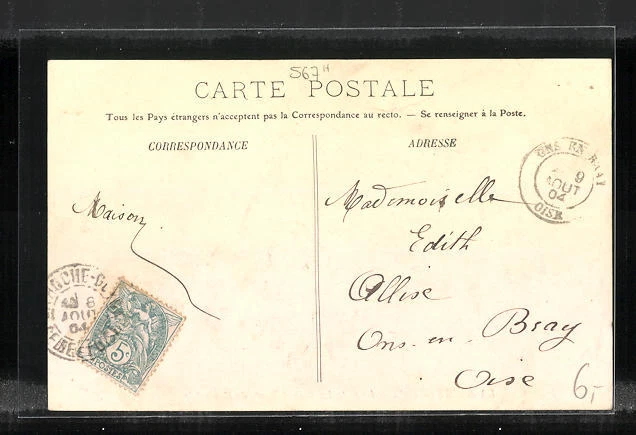 567 H
CARTE POSTALE
Tous les Pays étrangers n'acceptent pas la Correspondance au recto. — Se renseigner à la Poste.
CORRESPONDANCE
ADRESSE
ONS EN BRAY
9
AOUT
04
OISE
Maison
Mademoiselle
Edith
Allise
Ons-en-Bray
Oise
8
AOUT
04
5c
POSTES
6,-